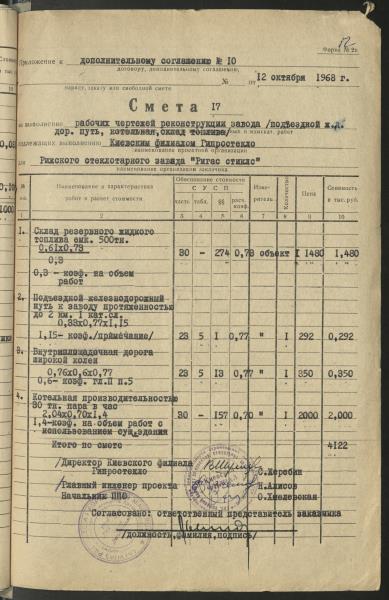 Форма № 2п
Приложение к дополнительному соглашению № 10
договору, дополнительному соглашению,
№ от 12 октября 1968 г.
наряду, заказу или сводной смете
Смета 17
на выполнение рабочих чертежей реконструкции завода /подъездной ж.д.
дор. путь, котельная, склад топлива/ и изыскат. работ
надлежащих выполнению Киевским филиалом Гипростекло
наименование проектной организации
для Рижского стеклотарного завода "Ригас стиклс"
наименование организации заказчика
№ Наименование и характеристика работ и расчет стоимости Обоснование стоимости СУСП часть табл. §§ расц. коэф. Изме-ритель Количество Цена Стоимость в тыс. руб.
1 2 3 4 5 6 7 8 9 10
1. Склад резервного жидкого
топлива емк. 500тн.
0,61х0,73
0,3 30 - 274 0,73 объект 1 1480 1,480
0,3 - коэф. на объем
работ
2. Подъездной железнодорожный
путь к заводу протяженностью
до 2 км. 1 кат.сл.
0,33х0,77х1,15
1,15- коэф. /примечание/ 23 5 1 0,77 " 1 292 0,292
3. Внутриплощадочная дорога
широкой колеи
0,76х0,6х0,77 23 5 13 0,77 " 1 350 0,350
0,6- коэф. гл.П п.5
4. Котельная производительностью
30 тн. пара в час
2,04х0,70х1,4 30 - 157 0,70 " 1 2000 2,000
1,4-коэф. на объем работ с
использованием сущ.здания
Итого по смете 4122
/Директор Киевского филиала
Гипростекло С.Жеребин
/Главный инженер проекта Н.Алисов
Начальник ППО О.Хмелевская
Согласовано: ответственный представитель заказчика
/должность, фамилия, подпись/